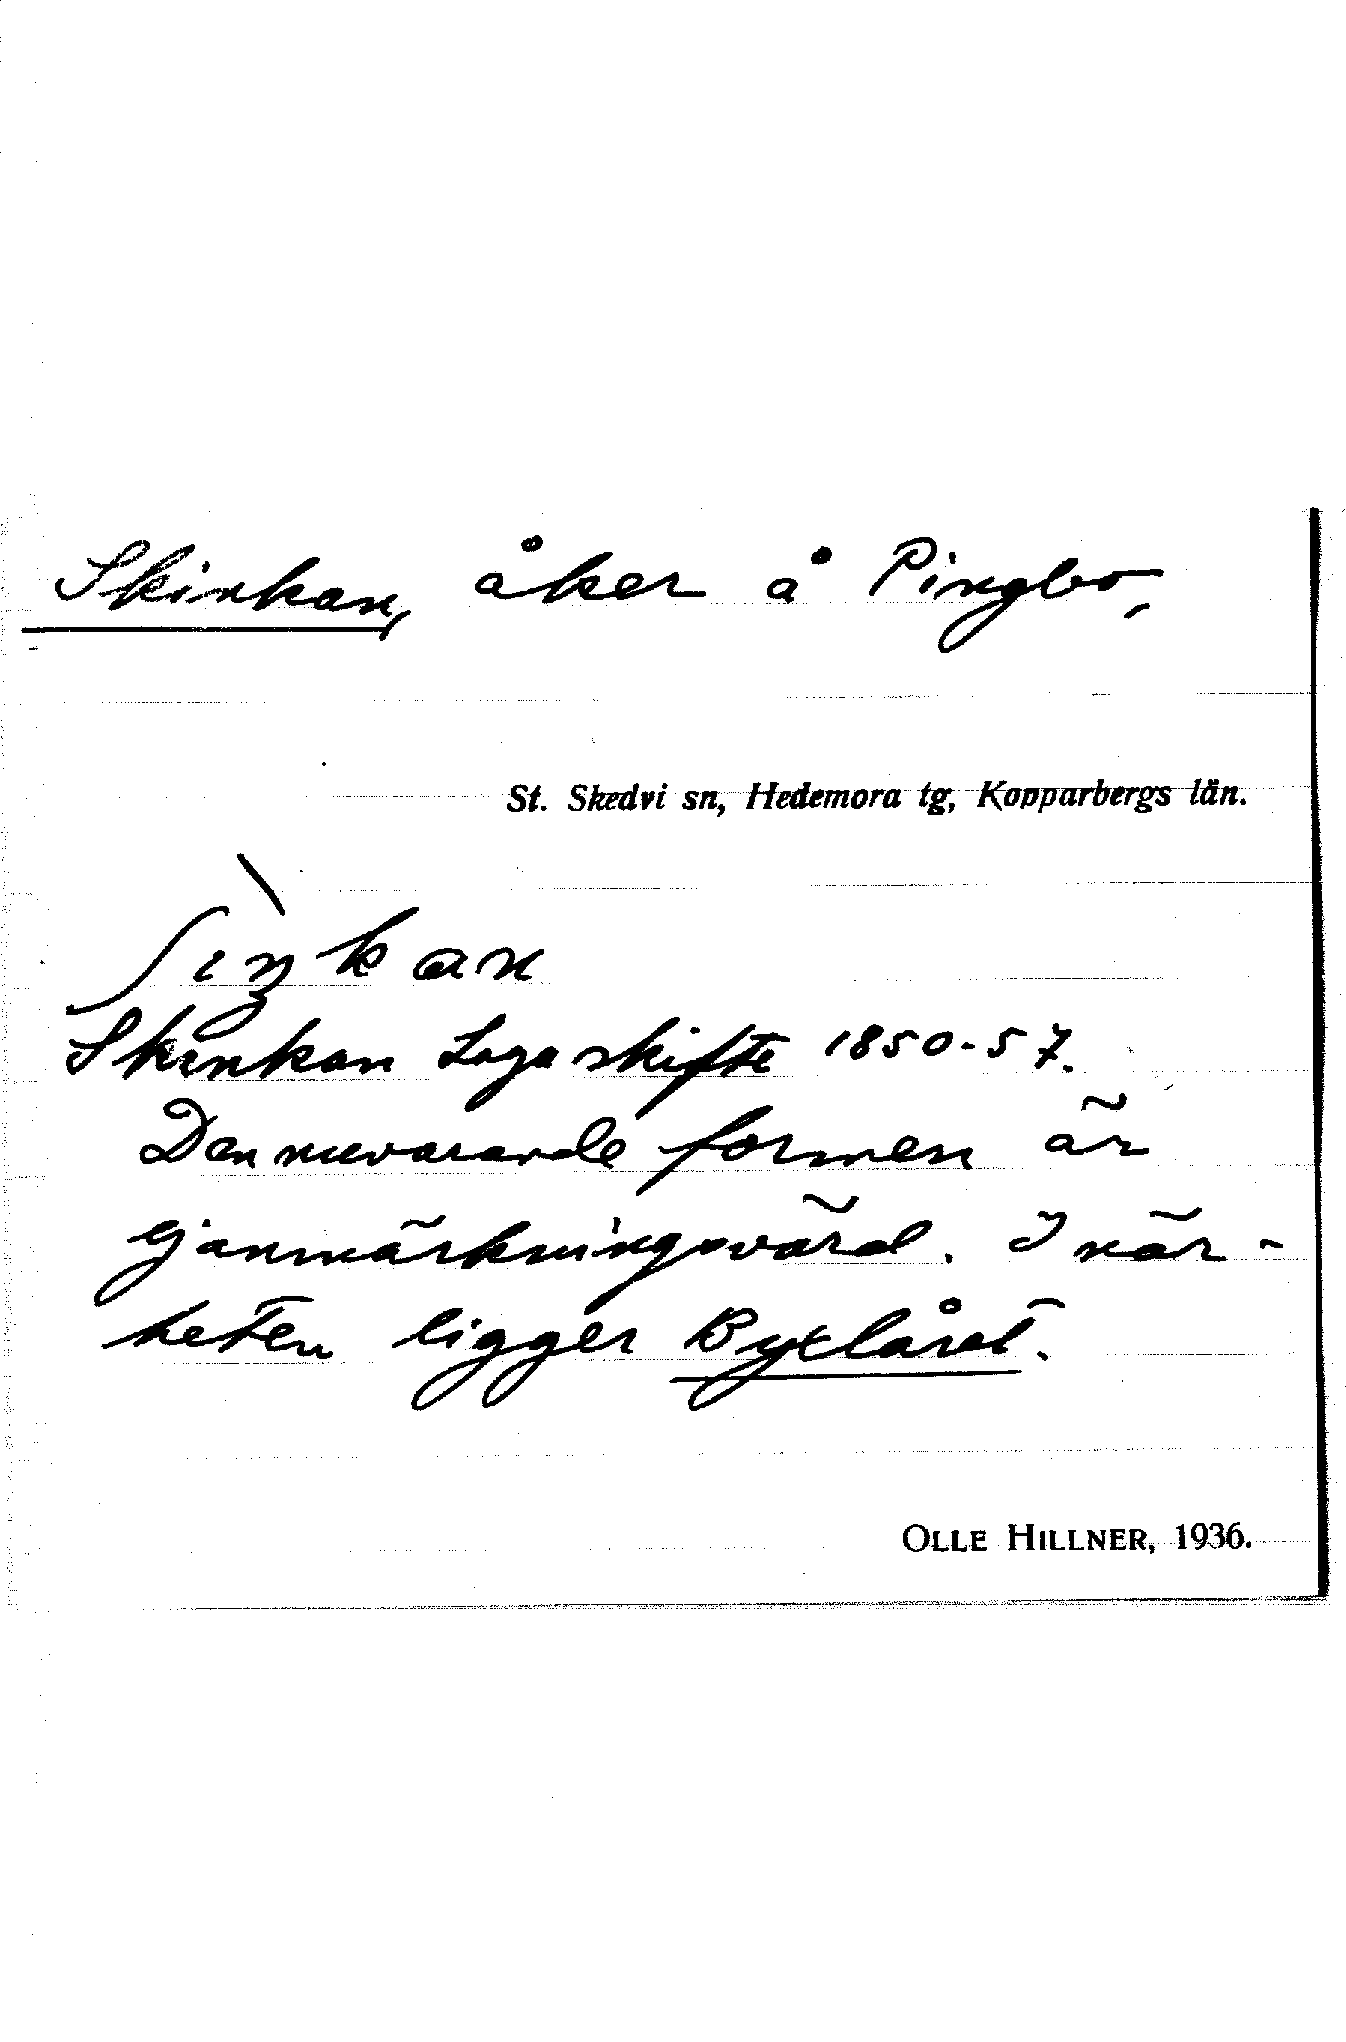 Skinkan, åker å Pingbo,
St. Skedvi sn, Hedemora tg, Kopparbergs län.
ʃìŋkan
Skinkan Laga skifte 1850-57.
Den nuvarande formen är
ej anmärkningsvärd. I när-
heten ligger Byxlåret.
OLLE HILLNER, 1936.